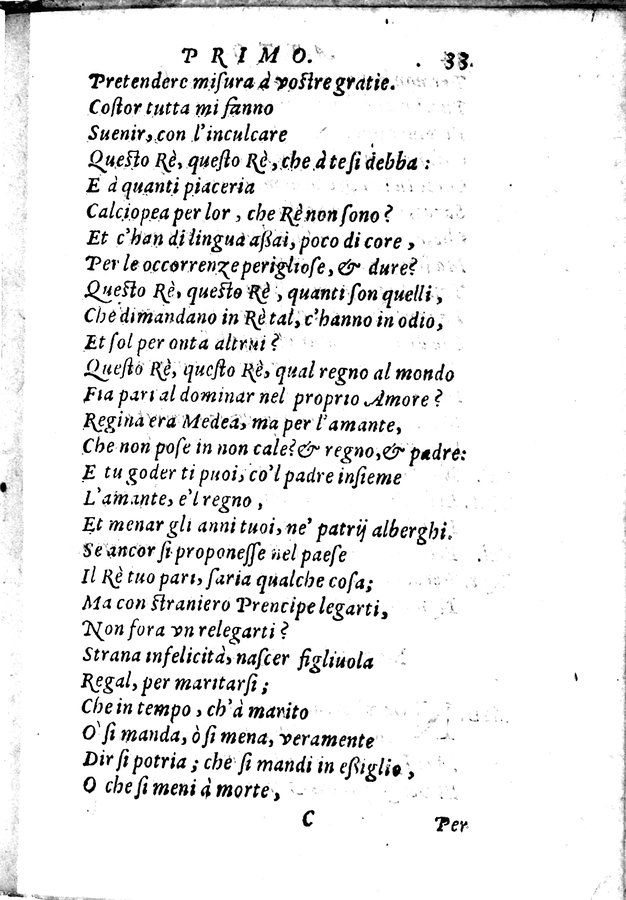 PRIMO. 33
Pretendere miſura à voſtre gratie.
Coſtor tutta mi fanno
Suenir, con l'inculcare
Queſto Rè, queſto Rè, che à te ſi debba:
E à quanti piaceria
Calciopea per lor, che Rè non ſono?
Et c'han di lingua aßai, poco di core,
Per le occorrenze periglioſe, & dure?
Queſto Rè, queſto Rè, quanti ſon quelli,
Che dimandano in Rè tal, c'hanno in odio,
Et ſol per onta altrui?
Queſto Rè, queſto Rè, qual regno al mondo
Fia pari al dominar nel proprio Amore?
Regina era Medea, ma per l'amante,
Che non poſe in non cale? & regno, & padre:
E tu goder ti puoi, co'l padre inſieme
L'amante, e'l regno,
Et menar gli anni tuoi, ne' patrij alberghi.
Se ancor ſi proponeſſe nel paeſe
Il Rè tuo pari, ſaria qualche coſa;
Ma con ſtraniero Prencipe legarti,
Non fora vn relegarti?
Strana infelicità, naſcer figliuola
Regal, per maritarſi;
Che in tempo, ch'à marito
O' ſi manda, ò ſi mena, veramente
Dir ſi potria; che ſi mandi in eßiglio,
O che ſi meni à morte,
C Per